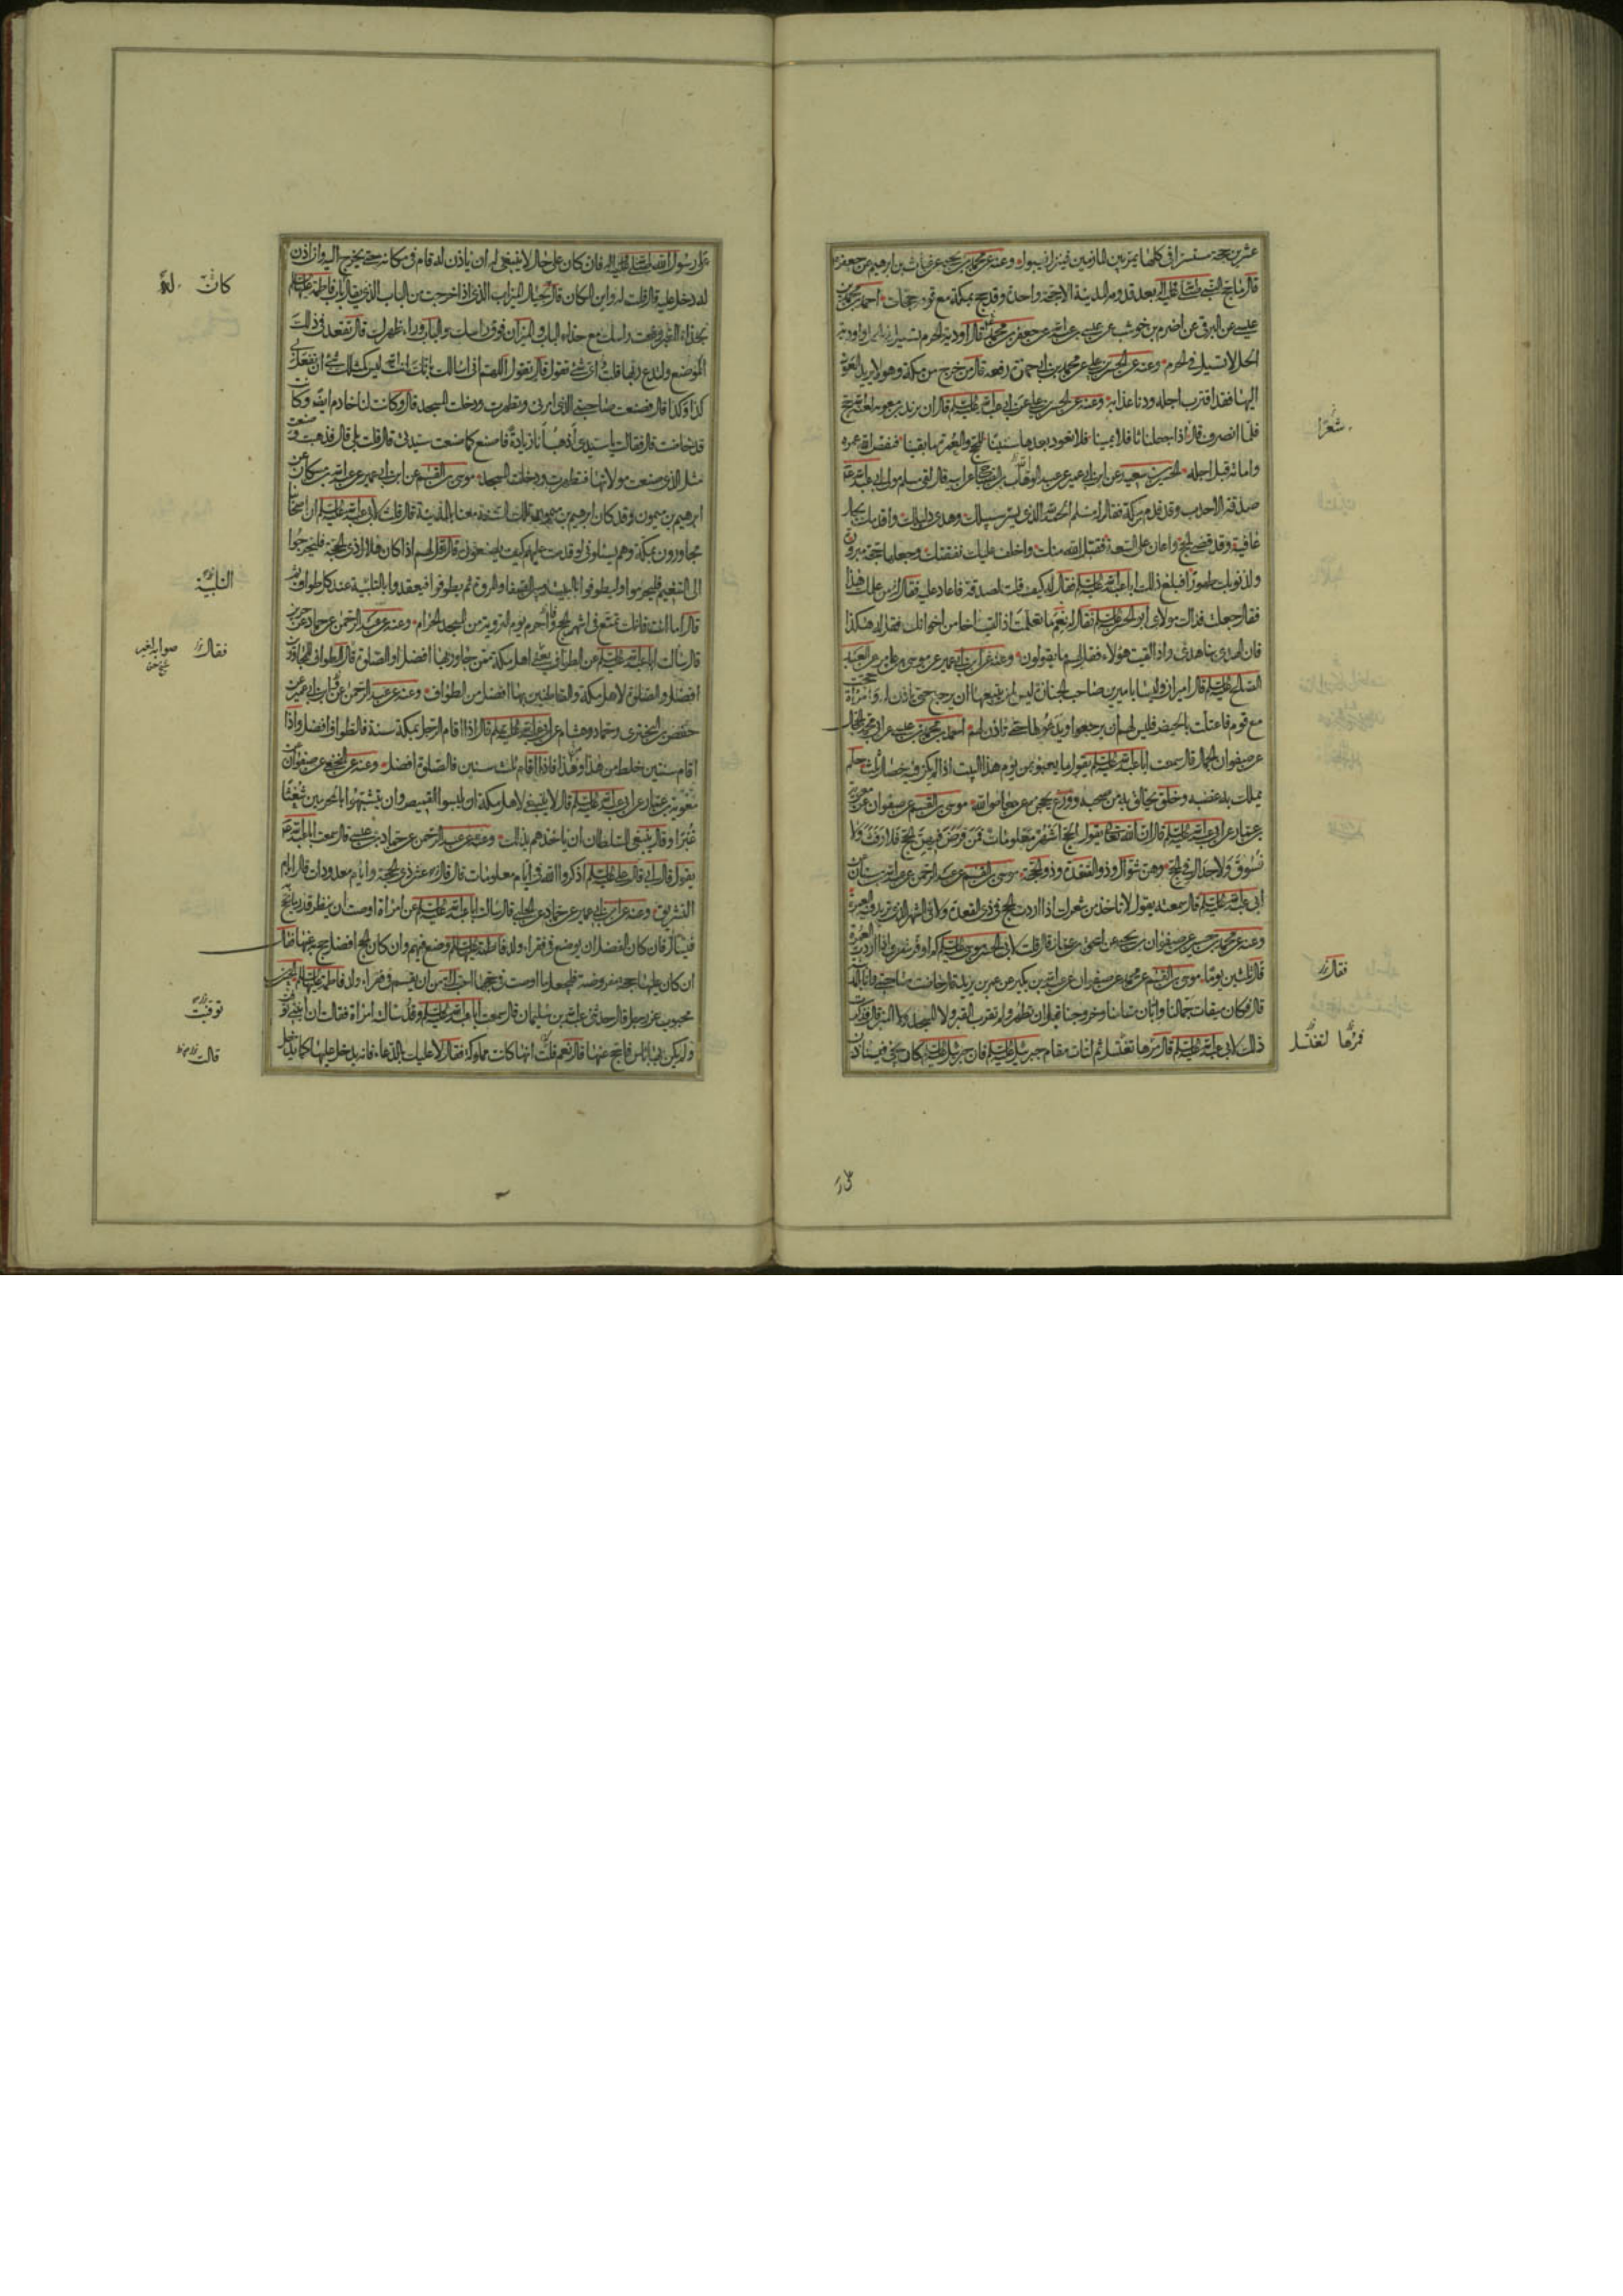 عشرين حجة مستسرا في كلها يمر بين المازمين فينزل فيبول وعنه عن محمد بن يحيى عن غياث بن ابرهيم عن جعفر
قال ما حج النبي صلى الله عليه وآله بعد قدومه المدينة الا حجة واحدة وقد حج بمكة مع قومه حجات احمد بن محمد بن
عيسى عن البرقي عن عيسى بن عبد الله عن جعفر بن محمد قال اودية الحرم تسيل في الحل واودية
الحل لا تسيل في الحرم وعنه عن الحسن بن علي عن محمد رفعه قال من خرج من مكة وهو لا يريد العود
اليها فقد اقترب اجله ودنا عذابه وعنه عن الحسن بن علي عن ابي عبد الله عليه السلم قال ان يزيد بن معوية لعنه الله حج
فلما انصرف قال اذا جعلنا ثافلا يمينا فلا نعود بعدها سنينا للحج والعمرة ما بقينا فنقص الله عمره
واماته قبل اجله الحسين بن سعيد عن ابن ابي عمير عن عبد الوهاب بن الصباح عن ابيه قال لقي مسلم مولى ابي عبد الله
صدقة الاحدب وقد قدم من مكة فقال له مسلم الحمد لله الذي يسر سبيلك وهدى دليلك واقدمك بحال
عافية وقد قضى الحج واعان على السعة فقبل الله منك واخلف عليك نفقتك وجعلها حجة مبرورة
ولذنوبك طهورا فبلغ ذلك ابا عبد الله عليه السلم فقال له كيف قلت لصدقة فاعاد عليه فقال له من علمك هذا
فقال جعلت فداك مولاي ابو الحسن عليه السلم فقال له نعم ما تعلمت اذا لقيت اخا من اخوانك فقل له هكذا
فان الهدى بنا هدى واذا لقيت هؤلاء فقل لهم ما يقولون وعنه عن ابن ابي عمير عن موسى بن عامر عن العبد
الصالح عليه السلم قال اميران وليسا باميرين صاحب الجنازة ليس لمن يتبعها ان يرجع حتى ياذن له وامراة حجت
مع قوم فاعتلت بالحيض فليس لهم ان يرجعوا ويدعوها حتى تاذن لهم احمد بن محمد بن عيسى عن ابي محمد الحجال
عن صفوان الجمال قال سمعت ابا عبد الله عليه السلم يقول ما يعبؤ بمن يؤم هذا البيت اذا لم يكن فيه خصال ثلث حلم
يملك به غضبه وخلق يخالق به من صحبه وورع يحجزه عن معاصي الله موسى بن القسم عن صفوان عن معوية
بن عمار عن ابي عبد الله عليه السلم قال ان الله تعالى يقول الحج اشهر معلومات فمن فرض فيهن الحج فلا رفث ولا
فسوق ولا جدال في الحج وهن شوال وذو القعدة وذو الحجة موسى بن القسم عن عبد الرحمن عن عبد الله بن سنان عن
ابي عبد الله عليه السلم قال سمعته يقول لا تاخذ من شعرك اذا اردت الحج في ذي القعدة ولا في الشهر الذي تريد فيه العمرة
وعنه عن محمد بن حسين عن صفوان بن يحيى عن اسحق بن عمار قال قلت لابي الحسن موسى عليه السلم كم اوفر شعري اذا اردت العمرة
قال ثلثين يوما موسى بن القسم عن محمد عن صفوان عن عبد الله بن بكير عن عمر بن يزيد قال حاضت صاحبتي وانا بالمدينة
قال وكان ميقات جمالنا وابان مقامنا وخروجنا قبل ان تطهر ولم تقرب القبر ولا المسجد ولا المنبر فذكرت
ذلك لابي عبد الله عليه السلم قال مرها تغتسل ثم لتات مقام جبرئيل عليه السلم فان جبرئيل عليه السلم كان يجيء فيستاذن
شعرا
فقال
فمرها لتغتسل
على رسول الله صلى الله عليه وآله فان كان على حال لا ينبغي له ان ياذن له قام في مكانه حتى يخرج اليه وان اذن
له دخل عليه قال قلت له واين المكان قال بحيال الميزاب الذي اذا خرجت من الباب الذي يقال له باب فاطمة عليها السلم
بحذاء القبر رفعت راسك مع حذاء الباب والميزاب فوق راسك والباب وراء ظهرك قال تقعد في ذلك
الموضع ولتدع ربها قلت واي شيء تقول قال تقول اللهم اني اسالك بانك انت الله ليس كمثلك شيء ان تفعل بي
كذا وكذا قال فصنعت صاحبتي الذي امرني وتطهرت ودخلت المسجد قال وكانت لنا خادم ايضا وكانت
قد حاضت قال فقالت يا سيدي اذهب انا زيادة فاصنع كما صنعت سيدتي قال قلت بلى قال فذهبت فصنعت
مثل الذي صنعت مولاتها فتطهرت ودخلت المسجد موسى بن القسم عن ابن ابي عمير عن عبد الله بن مسكان عن
ابرهيم بن ميمون وقد كان ابرهيم بن ميمون تلك السنة معنا بالمدينة قال قلت لابي عبد الله عليه السلم ان اصحابنا
مجاورون بمكة وهم يسئلوني لو قدمت عليهم كيف يصنعون قال قل لهم اذا كان هلال ذي الحجة فليخرجوا
الى التنعيم فليحرموا وليطوفوا بالبيت وبين الصفا والمروة ثم يطوفوا فيعقدوا بالتلبية عند كل طواف
قال اما انت فانك تمتع في اشهر الحج واحرم يوم التروية من المسجد الحرام وعنه عن عبد الرحمن عن حماد عن حريز
قال سالت ابا عبد الله عليه السلم عن الطواف يعني لاهل مكة ممن جاور بها افضل او الصلوة قال الطواف للمجاورين
افضل والصلوة لاهل مكة والقاطنين بها افضل من الطواف وعنه عن عبد الرحمن عن ابن ابي عمير عن
حفص بن البختري وحماد وهشام عن ابي عبد الله عليه السلم قال اذا اقام الرجل بمكة سنة فالطواف افضل واذا
اقام سنتين خلط من هذا وهذا فاذا اقام ثلث سنين فالصلوة افضل وعنه عن النخعي عن صفوان عن
معوية بن عمار عن ابي عبد الله عليه السلم قال لا ينبغي لاهل مكة ان يلبسوا القميص وان يتشبهوا بالمحرمين شعثا
غبرا وقال ينبغي للسلطان ان ياخذهم بذلك وعنه عن عبد الرحمن عن حماد بن عيسى قال سمعت ابا عبد الله
يقول قال ابي قال علي عليه السلم اذكروا الله في ايام معلومات قال قال عشر ذي الحجة وايام معدودات قال ايام
التشريق وعنه عن ابن ابي عمير عن حماد عن الحلبي قال سالت ابا عبد الله عليه السلم عن امراة اوصت ان ينظر قدر ما يحج به
فيسال فان كان الفضل ان يوضع في فقراء ولد فاطمة عليها السلم وضع فيهم وان كان الحج افضل حج به عنها فقال
ان كان عليها حجة مفروضة فليجعل ما اوصت في حجها احب الي من ان يقسم في فقراء ولد فاطمة عليها السلم الحسن بن
محبوب عن رجل قال حدثني عبد الله بن سليمان قال سمعت ابا عبد الله عليه السلم وقد سالته امراة فقالت ان ابنتي توفيت
ولم يكن بها باس فاحج عنها قال نعم قلت انها كانت مملوكة فقال لا عليك بالدعاء فانه يدخل عليها كما يدخل
كان له
التلبية
فقال
توفيت
قالت